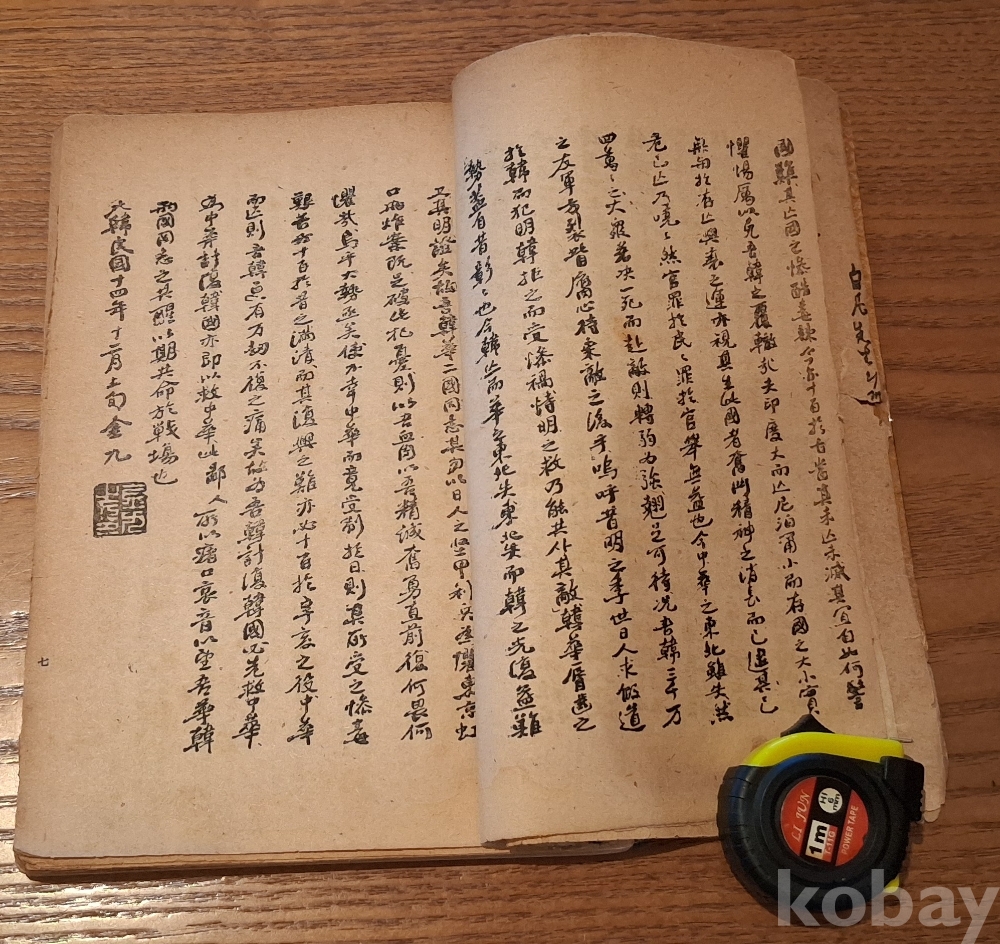 白凡先生
國難其亡國之慘酷毒辣今尤十百於古昔其未亡未滅其宜自如何警
惕厲以免吾韓之覆轍乎夫印度大而亡尼泊甫小而存國之大小實
無關於存亡興製之運亦視其生此國者奮鬥精神之消長而已
危已亡乃嘵嘵然官罪於民民罪於官舉無益也今中華之東北雖失然
四萬萬之大眾若決一死而赴敵則轉弱為強翹足可待況吾韓三千万
之友軍方裂眥腐心待乘敵之後乎嗚呼昔明之季世日人求假道
於韓而犯明韓拒之而受慘禍恃明之救乃能共仆其敵韓華唇齒之
勢蓋自昔彰彰也今韓亡而華之東北失東北失而韓之光復益難
又其明證矣 吾韓華二國同志其勿以日人之堅甲利兵 懼東京虹
口兩炸案既足破此杞憂則以吾血肉以吾精誠奮勇直前復何畏何
懼哉烏乎大勢亟矣使不幸中華而竟受制於日則其所受之慘毒
艱苦 十百於昔之滿清而其復興之難亦必十百於辛亥之役中華
而亡則吾韓亦有万劫不復之痛矣故為吾韓計復韓國必先救中華
為中華計復韓國亦即以救中華此鄙人所以瘏口哀音以望吾華韓
兩國同志之共醒以期共命於戰場也
大韓民國十四年十二月上旬金九
七
LI JUN
HI
6
mm
1m
T-11G
POWER TAPE
kobay